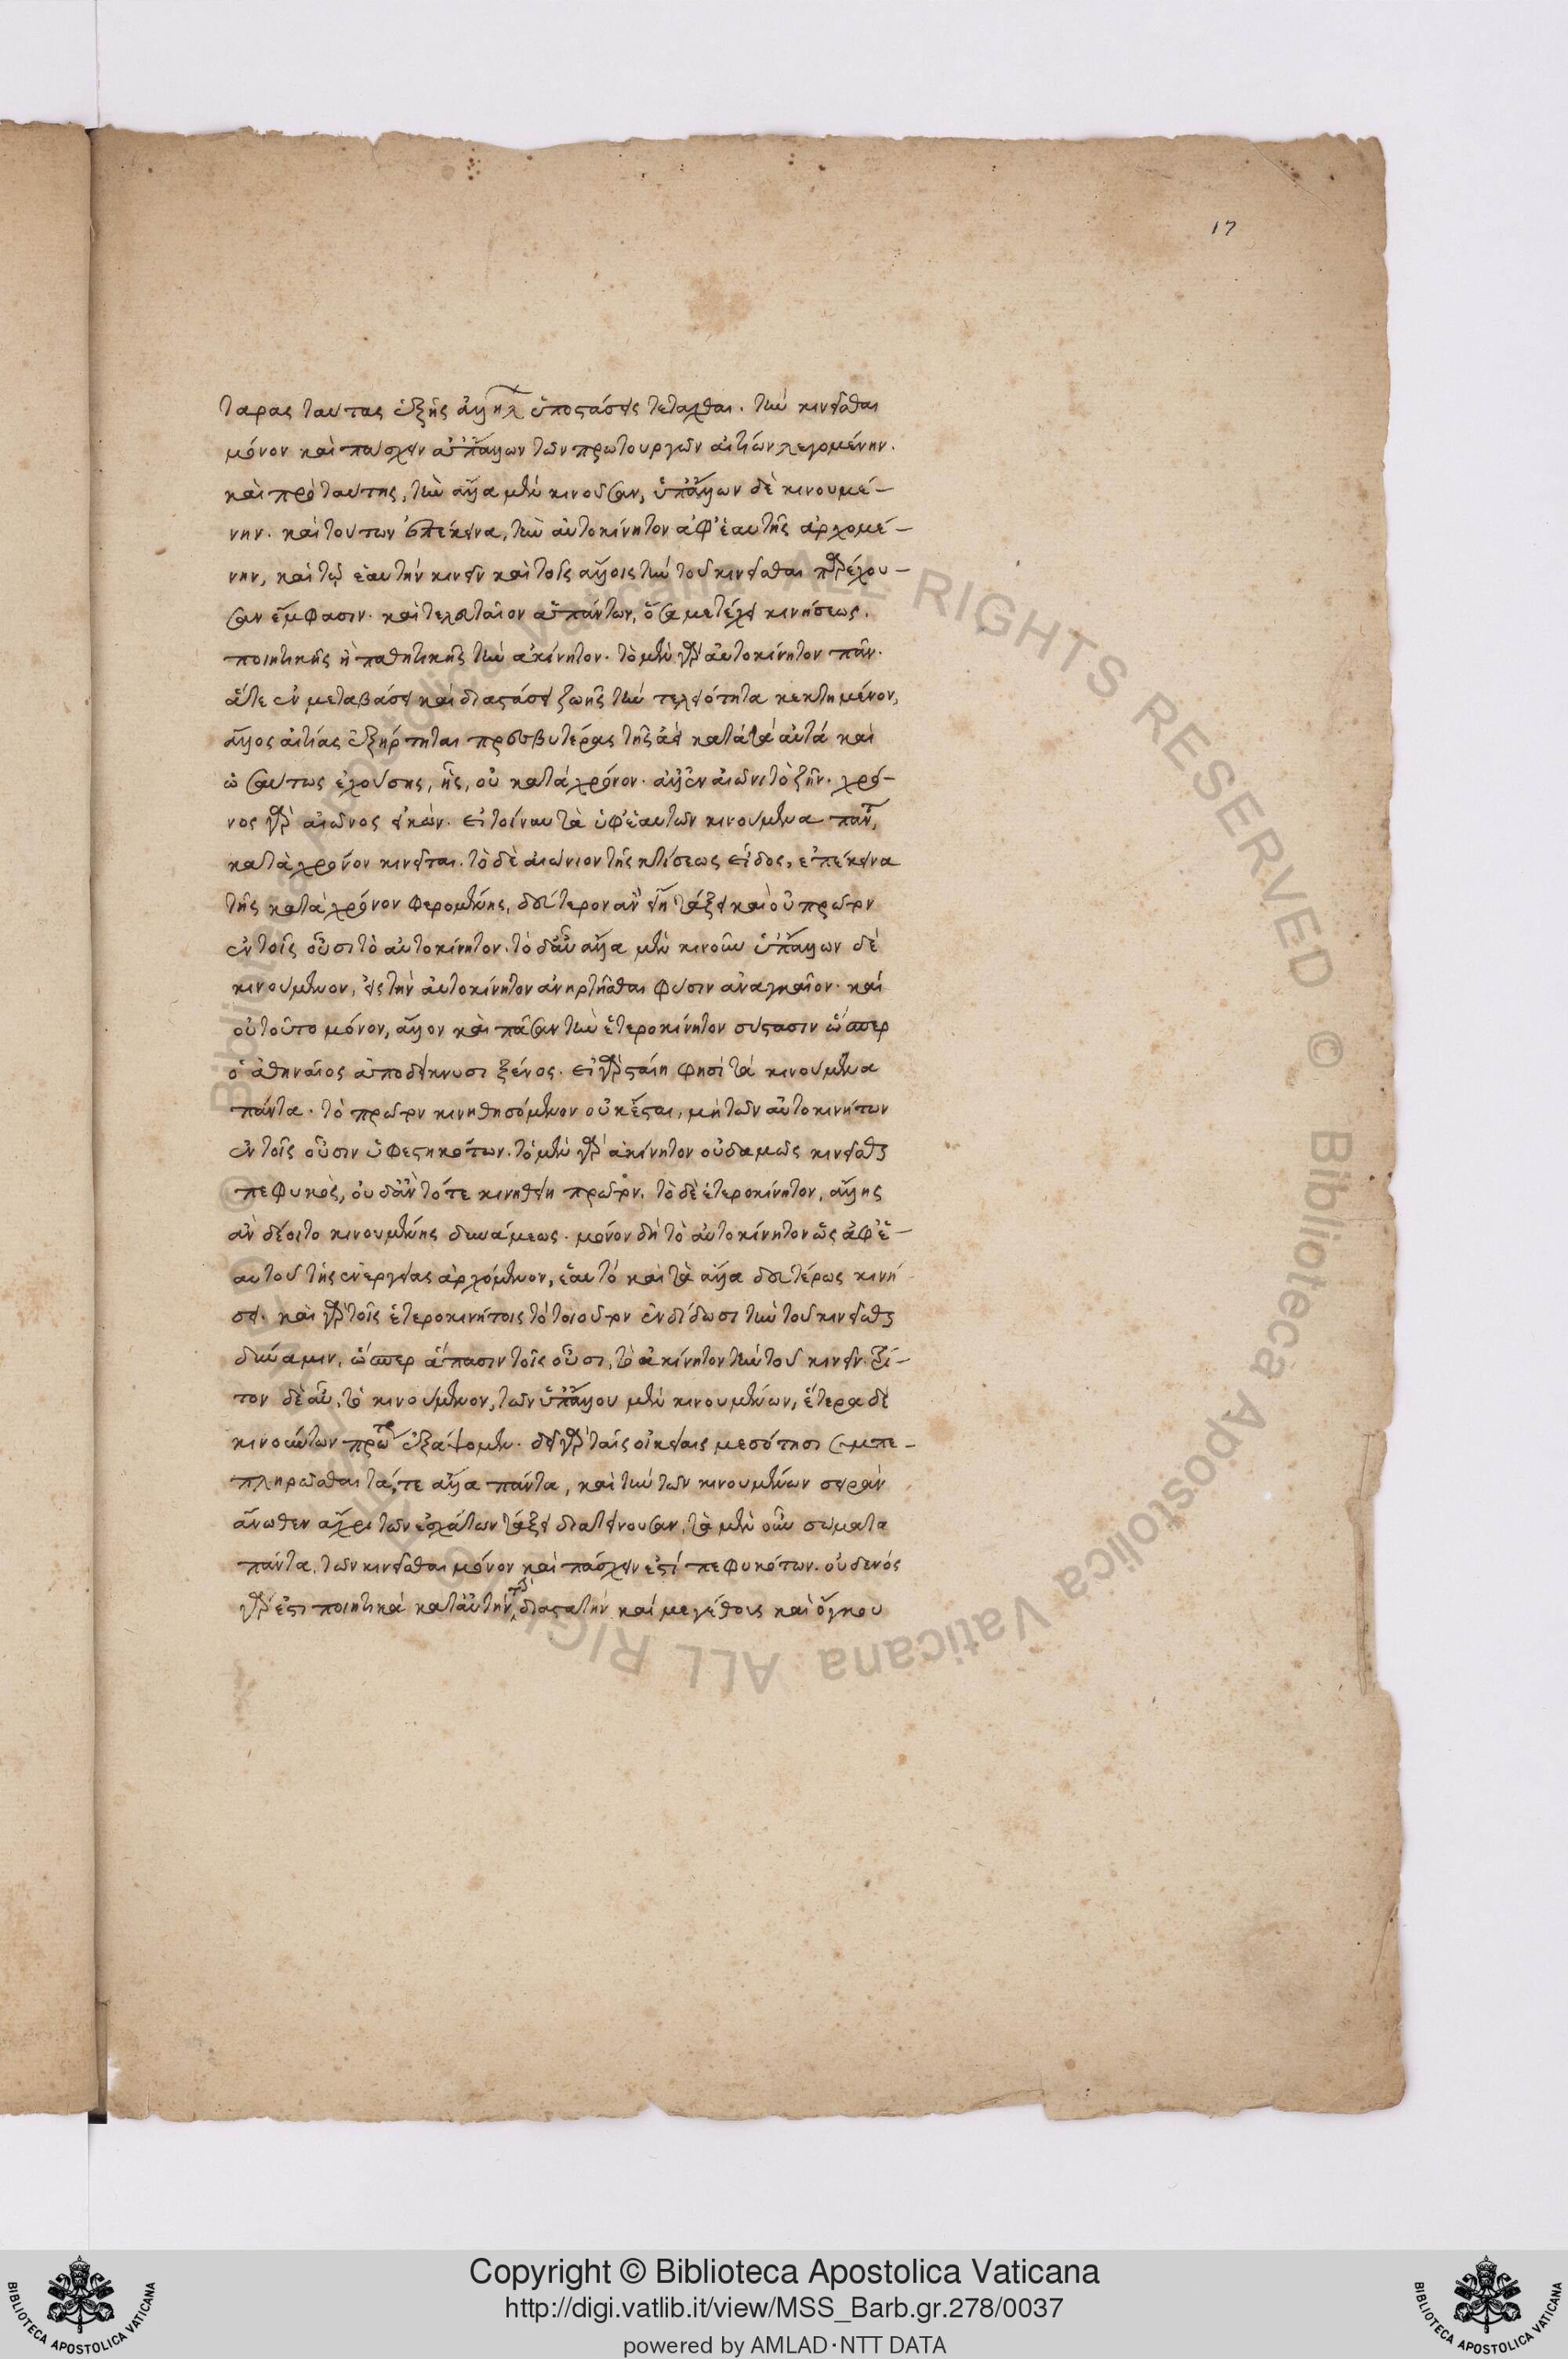 17
ταρας ταύτας ἑξῆς ἀλλήλ ὑποστάσεις τετάχθαι. τὴν κινεῖσθαι
μόνον καὶ πάσχειν ἀπ' ἄλλων τῶν πρωτουργῶν αἰτιῶν λεγομένην.
καὶ πρὸ ταύτης, τὴν ἄλλα μὲν κινοῦσαν, ὑπ' ἄλλων δὲ κινουμέ–
νην. καὶ τούτων ἐπέκεινα, τὴν αὐτοκίνητον ἀφ' ἑαυτῆς ἀρχομέ–
νην, καὶ τῷ ἑαυτὴν κινεῖν καὶ τοῖς ἄλλοις τὴν τοῦ κινεῖσθαι παρέχου–
σαν ἔμφασιν. καὶ τελευταῖον ἁπάντων, ὅσα μετέχει κινήσεως.
ποιητικῆς ἢ παθητικῆς τὴν ἀκίνητον. τὸ μὲν γὰρ αὐτοκίνητον πᾶν.
ἅτε ἐν μεταβάσει καὶ διαστάσει ζωῆς τὴν τελειότητα κεκτημένον,
ἄλλος αἰτίας ἐξήρτηται πρεσβυτέρας τῆς ἀεὶ κατὰ τὰ αὐτὰ καὶ
ὡσαύτως ἐχούσης, ἧς, οὐ κατὰ χρόνον. ἀλλ' ἐν αἰῶνι τὸ ζῆν. χρό–
νος γὰρ αἰῶνος εἰκών. εἰ τοίνυν τὰ ὑφ' ἑαυτῶν κινούμενα πάντ,
κατὰ χρόνον κινεῖται. τὸ δὲ αἰώνιον τῆς κτίσεως εἶδος, ἐπέκεινα
τῆς κατὰ χρόνον φερομένης, δεύτερον ἂν εἴη τάξει καὶ οὐ πρῶτον
ἐν τοῖς οὖσι τὸ αὐτοκίνητον. τὸ δ' αὖ ἄλλα μὲν κινοῦν ὑπ' ἄλλων δὲ
κινούμενον, εἰς τὴν αὐτοκίνητον ἀνηρτῆσθαι φύσιν ἀναγκαῖον. καὶ
οὐ τοῦτο μόνον, ἄλλον καὶ πᾶσαν τὴν ἑτεροκίνητον σύστασιν ὥσπερ
ὁ ἀθηναῖος ἀποδείκνυσι ξένος. εἰ γὰρ σταίη φησὶ τὰ κινούμενα
πάντα. τὸ πρῶτον κινηθησόμενον οὐκ ἔσται, μὴ τῶν αὐτοκινήτων
ἐν τοῖς οὖσιν ὑφεστηκότων. τὸ μὲν γὰρ ἀκίνητον οὐδαμῶς κινεῖσθαι
πεφυκὸς, οὐδ' ἂν τότε κινηθείη πρῶτον. τὸ δὲ ἑτεροκίνητον, ἄλλης
ἂν δέοιτο κινουμένης δυνάμεως. μόνον δὴ τὸ αὐτοκίνητον ὡς ἀφ' ἑ–
αυτοῦ τῆς ἐνεργείας ἀρχόμενον, ἑαυτό καὶ τὰ ἄλλα δευτέρως κινή
σει. καὶ γὰρ τοῖς ἑτεροκινήτοις τὸ τοιοῦτον ἐνδίδωσι τὴν τοῦ κινεῖσθαι
δύναμιν, ὥσπερ ἅπασιν τοῖς οὖσι, τὸ ἀκίνητον τὴν τοῦ κινεῖν. τρί–
τον δὲ αὖ, τὸ κινούμενον, τῶν ὑπ' ἄλλου μὲν κινουμένων, ἕτερα δὲ
κινούντων πρώτω ἐξάψομεν. δεῖ γὰρ ταῖς οἰκείαις μεσότησι συμπε–
πληρῶσθαι τά, τε ἄλλα πάντα, καὶ τὴν τῶν κινουμένων σειρὰν
ἄνωθεν ἄχρι τῶν ἐσχάτων τάξει διατείνουσαν. τὰ μὲν οὖν σώματα
πάντα, τῶν κινεῖσθαι μόνον καὶ πάσχειν ἐστί πεφυκότων. οὐδενός
γάρ ἐστι ποιητικὰ κατ' αὐτὴν, τὸ διαστατὴν καὶ μεγέθους καὶ ὄγκου
Copyright © Biblioteca Apostolica Vaticana
http://digi.vatlib.it/view/MSS_Barb.gr.278/0037
powered by AMLAD·NTT DATA